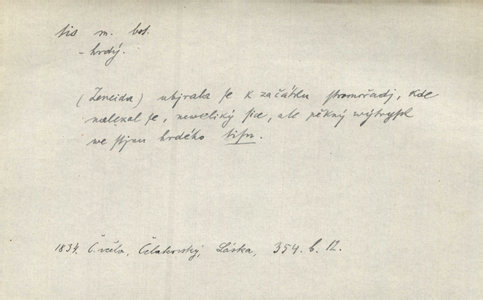 tis m. bot.
- hrdý.
(Zeneida) ubjrala se k začátku stromořadj, kde
nalezal se, neweliký sice, ale pěkný wýtrysk
we stjnu hrdého tisu.
1834. Č. včela, Čelakovský, Láska, 354. b. 12.